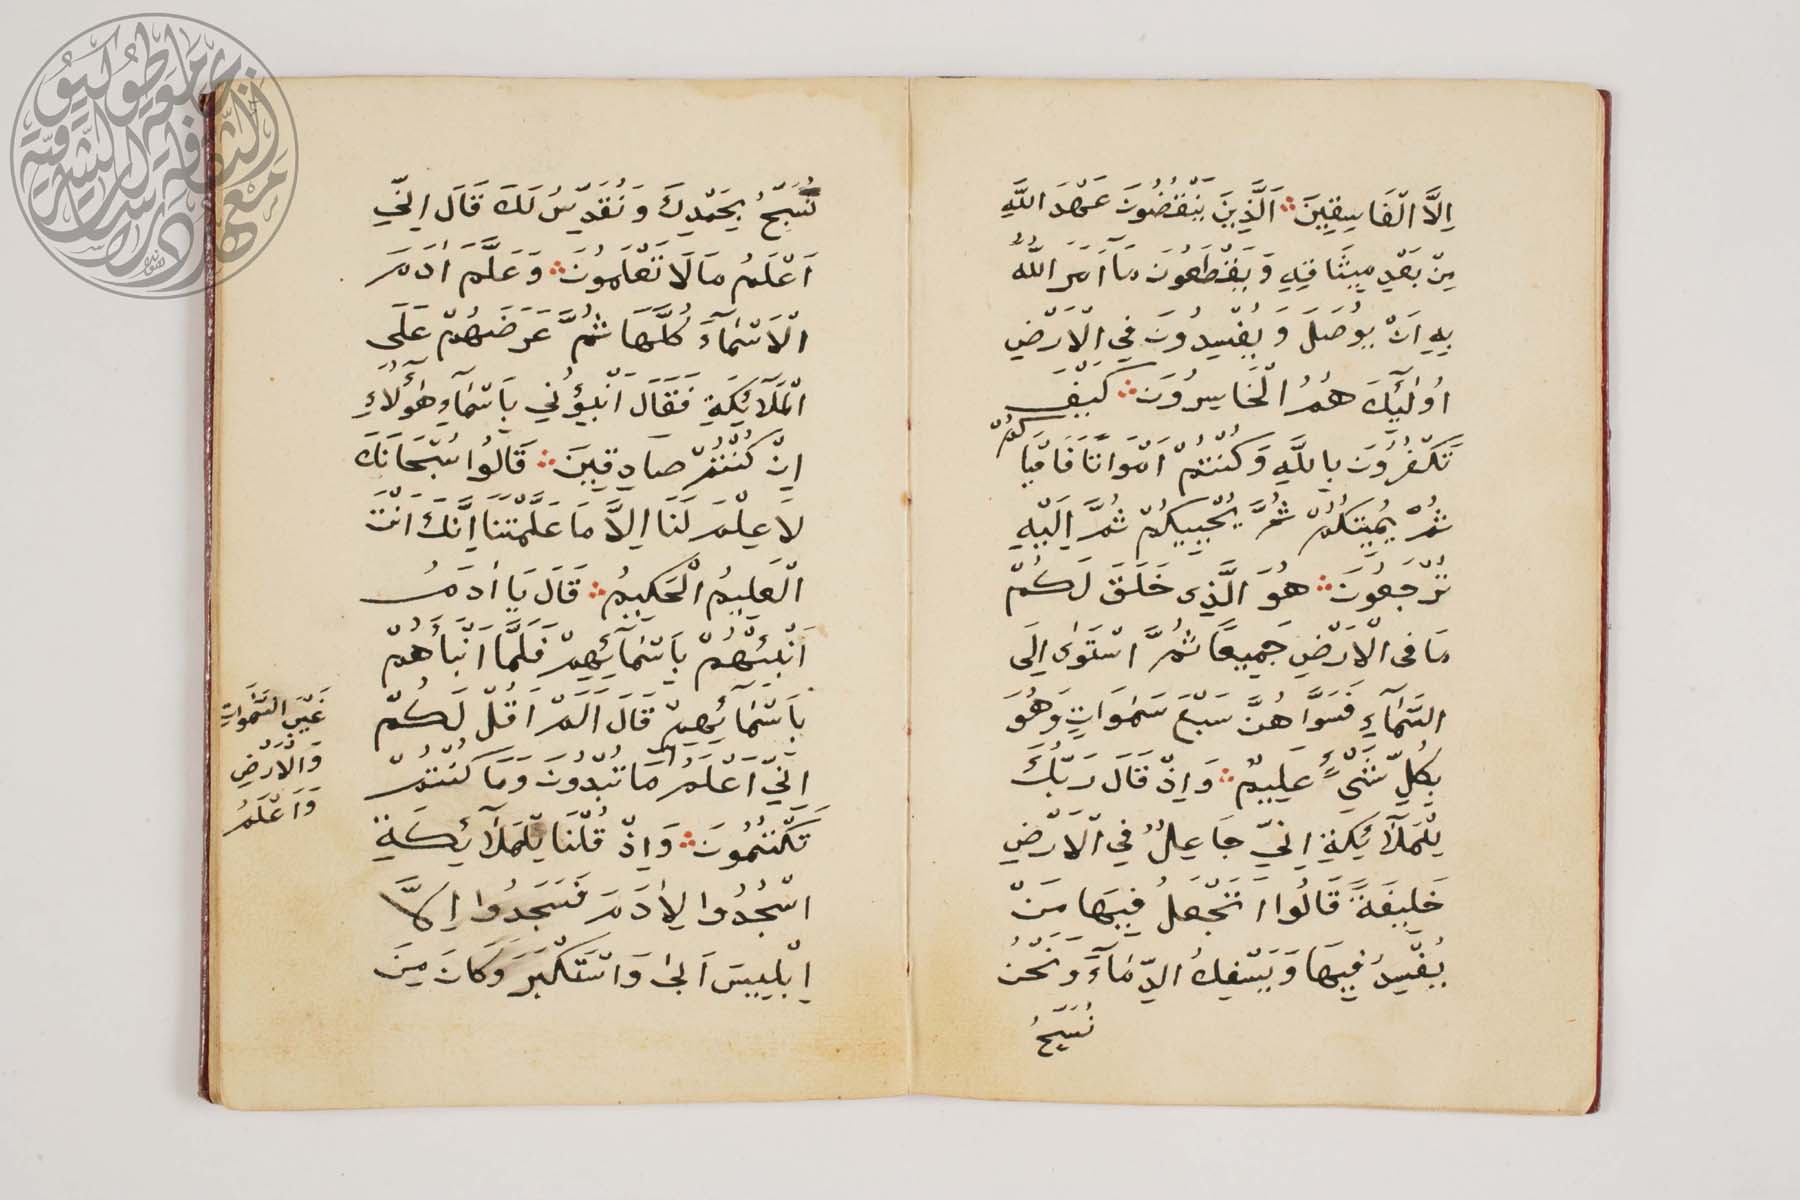 اِلَّا الْفَاسِقِينَ ۞ اَلَّذِينَ يَنْقُضُونَ عَهْدَ اللَّهِ
مِنْ بَعْدِ مِيثَاقِهِ وَيَقْطَعُونَ مَآ اَمَرَ اللَّهُ
بِهِ اَنْ يُوصَلَ وَيُفْسِدُونَ فِي الْاَرْضِ
اُولٰٓئِكَ هُمُ الْخَاسِرُونَ ۞ كَيْفَ
تَكْفُرُونَ بِاللَّهِ وَكُنْتُمْ اَمْوَاتًا فَاَحْيَاكُمْ
ثُمَّ يُمِيتُكُمْ ثُمَّ يُحْيِيكُمْ ثُمَّ اِلَيْهِ
تُرْجَعُونَ ۞ هُوَ الَّذِي خَلَقَ لَكُمْ
مَا فِي الْاَرْضِ جَمِيعًا ثُمَّ اسْتَوٰى اِلَى
السَّمَآءِ فَسَوَّاهُنَّ سَبْعَ سَمٰوَاتٍ وَهُوَ
بِكُلِّ شَيْءٍ عَلِيمٌ ۞ وَاِذْ قَالَ رَبُّكَ
لِلْمَلَآئِكَةِ اِنِّي جَاعِلٌ فِي الْاَرْضِ
خَلِيفَةً قَالُوا اَتَجْعَلُ فِيهَا مَنْ
يُفْسِدُ فِيهَا وَيَسْفِكُ الدِّمَآءَ وَنَحْنُ
نُسَبِّحُ
نُسَبِّحُ بِحَمْدِكَ وَنُقَدِّسُ لَكَ قَالَ اِنِّي
اَعْلَمُ مَا لَا تَعْلَمُونَ ۞ وَعَلَّمَ اٰدَمَ
الْاَسْمَآءَ كُلَّهَا ثُمَّ عَرَضَهُمْ عَلَى
الْمَلَآئِكَةِ فَقَالَ اَنْبِؤُنِي بِاَسْمَآءِ هٰٓؤُلَآءِ
اِنْ كُنْتُمْ صَادِقِينَ ۞ قَالُوا سُبْحَانَكَ
لَا عِلْمَ لَنَا اِلَّا مَا عَلَّمْتَنَا اِنَّكَ اَنْتَ
الْعَلِيمُ الْحَكِيمُ ۞ قَالَ يَا اٰدَمُ
اَنْبِئْهُمْ بِاَسْمَآئِهِمْ فَلَمَّا اَنْبَأَهُمْ
بِاَسْمَآئِهِمْ قَالَ اَلَمْ اَقُلْ لَكُمْ
اِنِّي اَعْلَمُ مَا تُبْدُونَ وَمَا كُنْتُمْ
تَكْتُمُونَ ۞ وَاِذْ قُلْنَا لِلْمَلَآئِكَةِ
اسْجُدُوا لِاٰدَمَ فَسَجَدُوا اِلَّا
اِبْلِيسَ اَبٰى وَاسْتَكْبَرَ وَكَانَ مِنَ
غَيْبَ السَّمٰوَاتِ
وَالْاَرْضِ
وَاَعْلَمُ